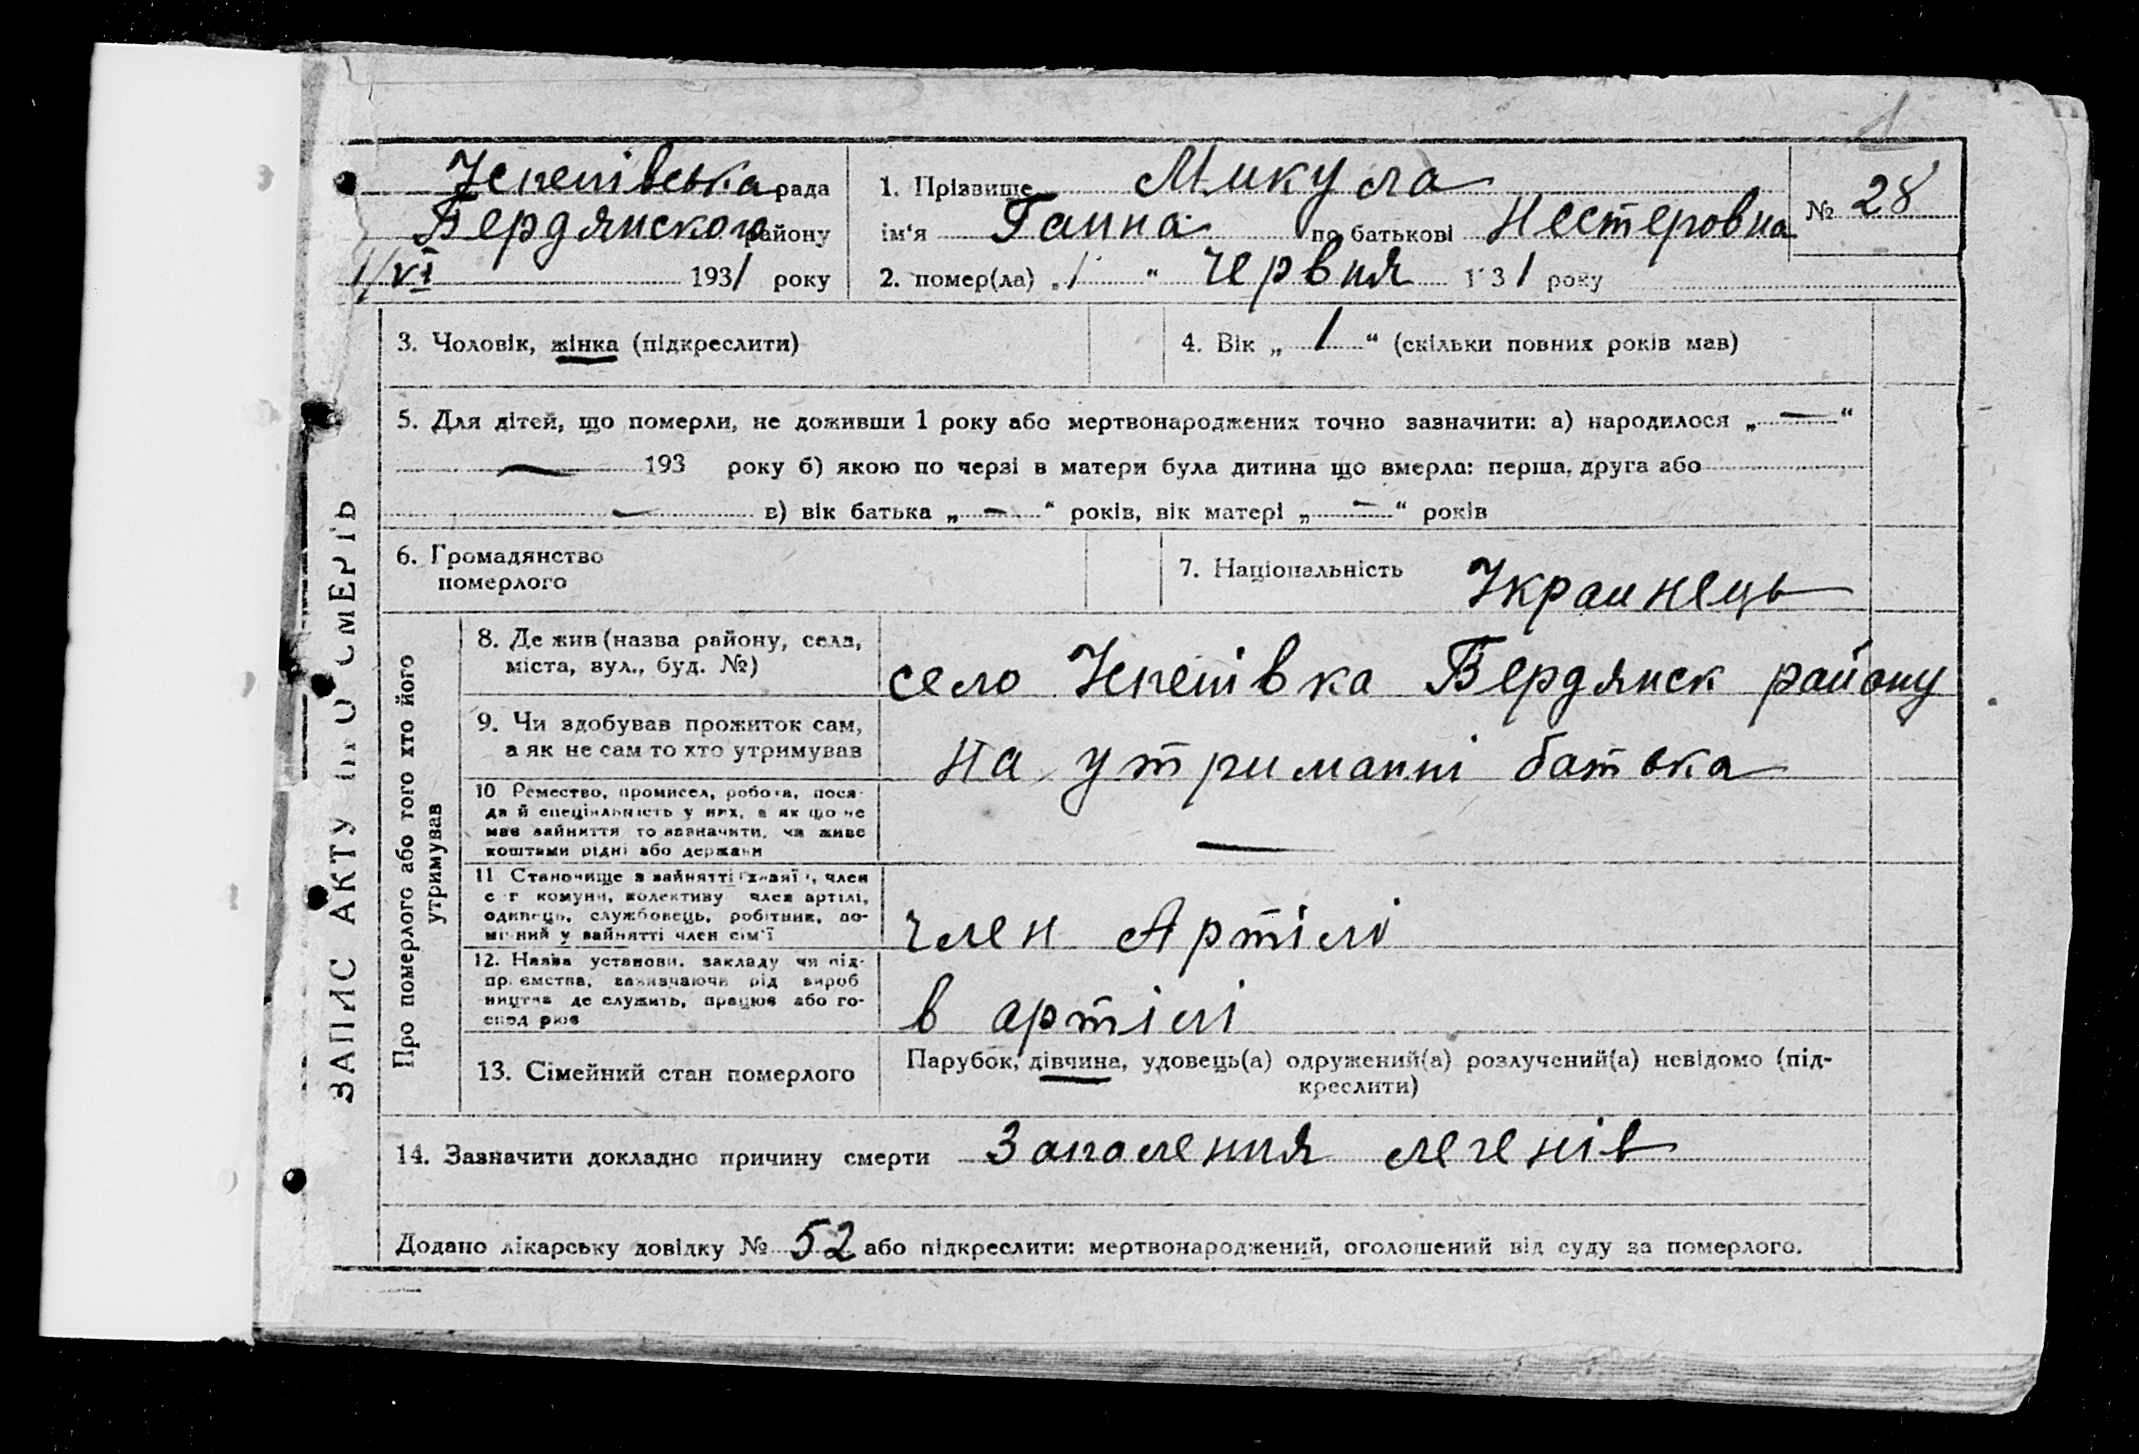 Успенівська рада
Бердянского району
1/VI 1931 року
1. Прізвище Микула
ім'я Ганна по батькові Нестеровна
2. помер(ла) „1“ червня 1931 року
№ 28
3. Чоловік, жінка (підкреслити)
4. Вік „1“ (скільки повних років мав)
5. Для дітей, що померли, не доживши 1 року або мертвонароджених точно зазначити: а) народилося „—“
— 193 року б) якою по черзі в матери була дитина що вмерла: перша, друга або
— в) вік батька „—“ років, вік матері „—“ років
6. Громадянство
померлого
7. Національність Украинець
ЗАПИС АКТУ ПРО СМЕРТЬ
Про померлого або того хто його
утримував
8. Де жив (назва району, села,
міста, вул., буд. №)
село Успенівка Бердянск району
9. Чи здобував прожиток сам,
а як не сам то хто утримував
на утриманні батька
10 Ремество, промисел, робота, поса-
да й спеціальність у них, а як що не
мав зайняття то зазначити, чи живе
коштами рідні або держави
—
11 Становище в зайнятті член
с-г комуни, колективу член артілі,
одинець, службовець, робітник, по-
мічний у зайнятті член сім'ї
член Артілі
12. Назва установи, закладу чи під-
приємства, зазначаючи рід вироб
ництва де служить, працює або го-
спод рює
в артілі
13. Сімейний стан померлого
Парубок, дівчина, удовець(а) одружений(а) розлучений(а) невідомо (під-
креслити)
14. Зазначити докладно причину смерти Запалення легенів
Додано лікарську довідку № 52 або підкреслити: мертвонароджений, оголошений від суду за померлого.